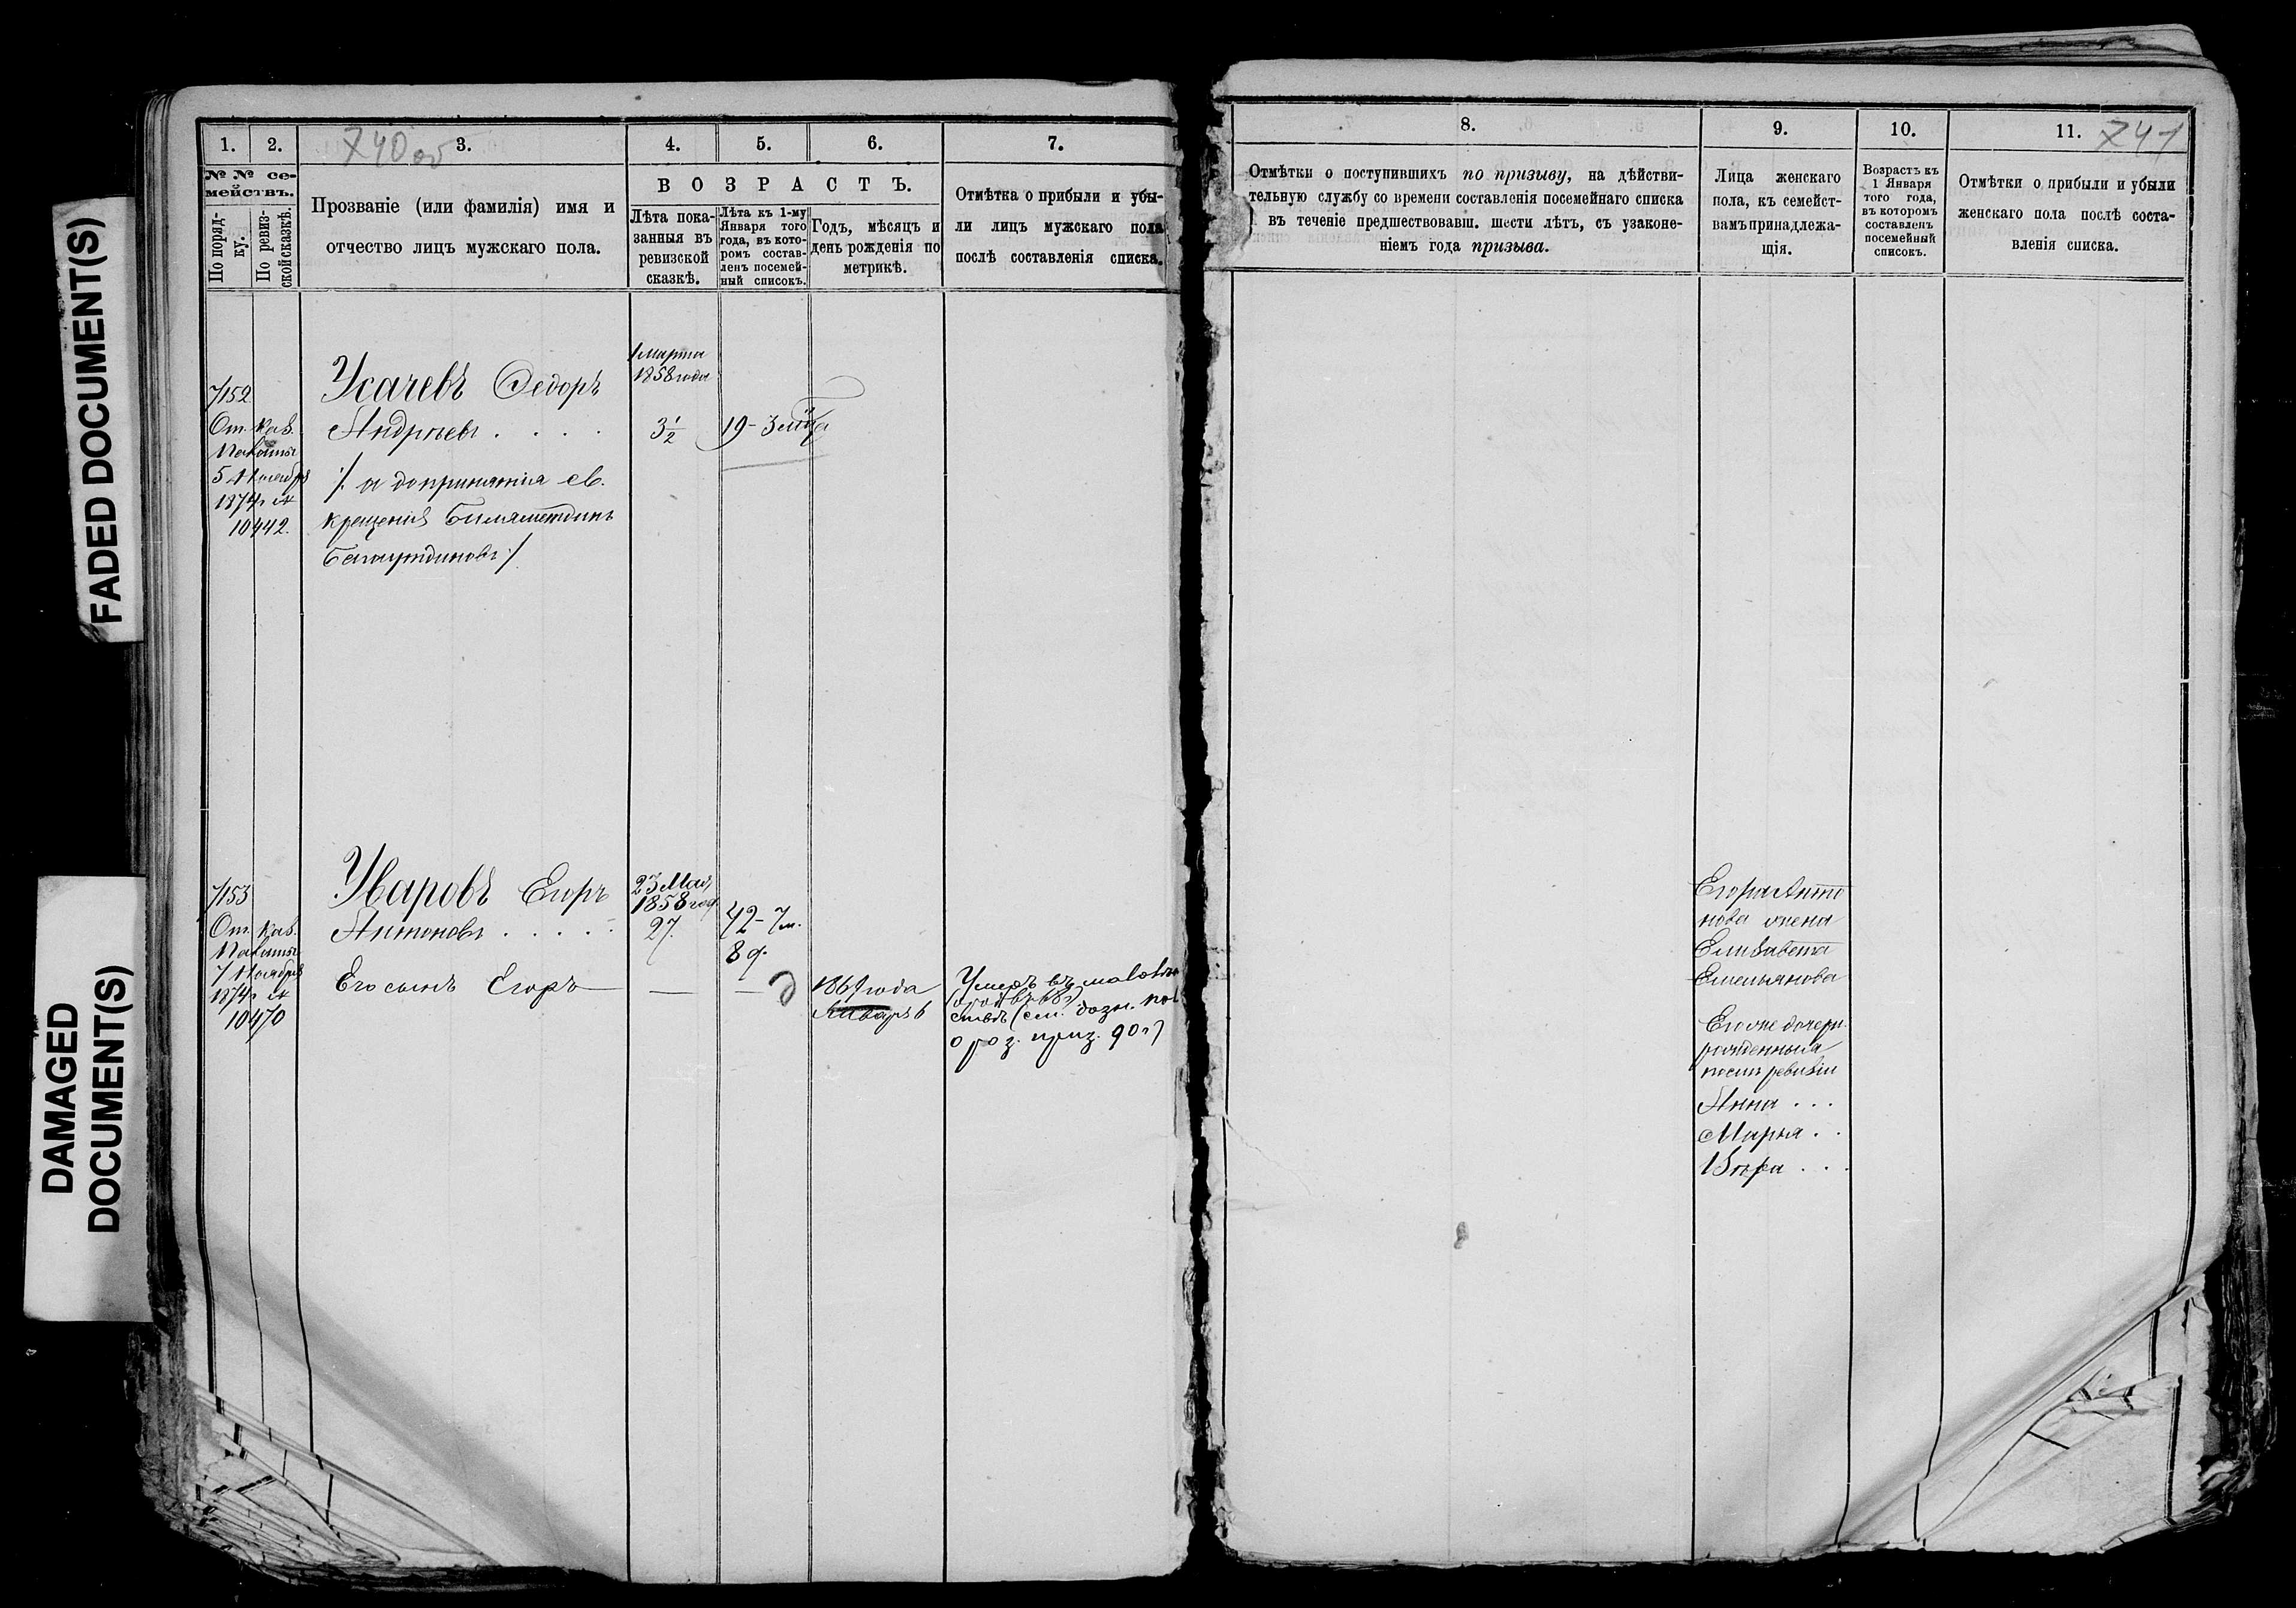 FADED DOCUMENT(S)
DAMAGED
DOCUMENT(S)
1. 2. 3. 4. 5. 6. 7.
740 об
№ № се-
мействъ.
По поряд-
ку.
По ревиз-
ской сказкѣ.
Прозваніе (или фамилія) имя и
отчество лицъ мужскаго пола.
ВОЗРАСТЪ.
Лѣта пока-
занныя въ
ревизской
сказкѣ.
Лѣта къ 1-му
Января того
года, въ кото-
ромъ состав-
ленъ посемей-
ный списокъ.
Годъ, мѣсяцъ и
день рожденія по
метрикѣ.
Отмѣтка о прибыли и убы-
ли лицъ мужскаго пола
послѣ составленія списка.
1 марта
1858 года
7152
Усачевъ Федоръ
Андреевъ . . . .
3 1/2
19-3
От. Каз.
Палаты
5 Ноября
1874 г №
10442.
/. а до принятія св.
крещенія Билялетдинъ
Багаутдиновъ ./
7153
Уваровъ Егоръ
23 Мая
1858 год
Антоновъ . . . . .
27.
42-7 м.
8 д.
От. Каз.
Палаты
7 Ноября
1874 г №
10470
Его сынъ Егоръ
— —
186 года
Январь 6
Умеръ въ малолѣт
ствѣ (см. дозн. пол
о роз. приз. 90 г)
8. 9. 10. 11.
741
Отмѣтки о поступившихъ по призыву, на дѣйстви-
тельную службу со времени составленія посемейнаго списка
въ теченіе предшествовавш. шести лѣтъ, съ узаконе-
ніемъ года призыва.
Лица женскаго
пола, къ семейст-
вамъ принадлежа-
щія.
Возрастъ къ
1 Января
того года,
въ которомъ
составленъ
посемейный
списокъ.
Отмѣтки о прибыли и убыли
женскаго пола послѣ соста-
вленія списка.
Егора Анто
нова жена
Елизавета
Емельянова
Его же дочери
рожденныя
послѣ ревизіи
Анна . . .
Марья . .
Вѣра . . .